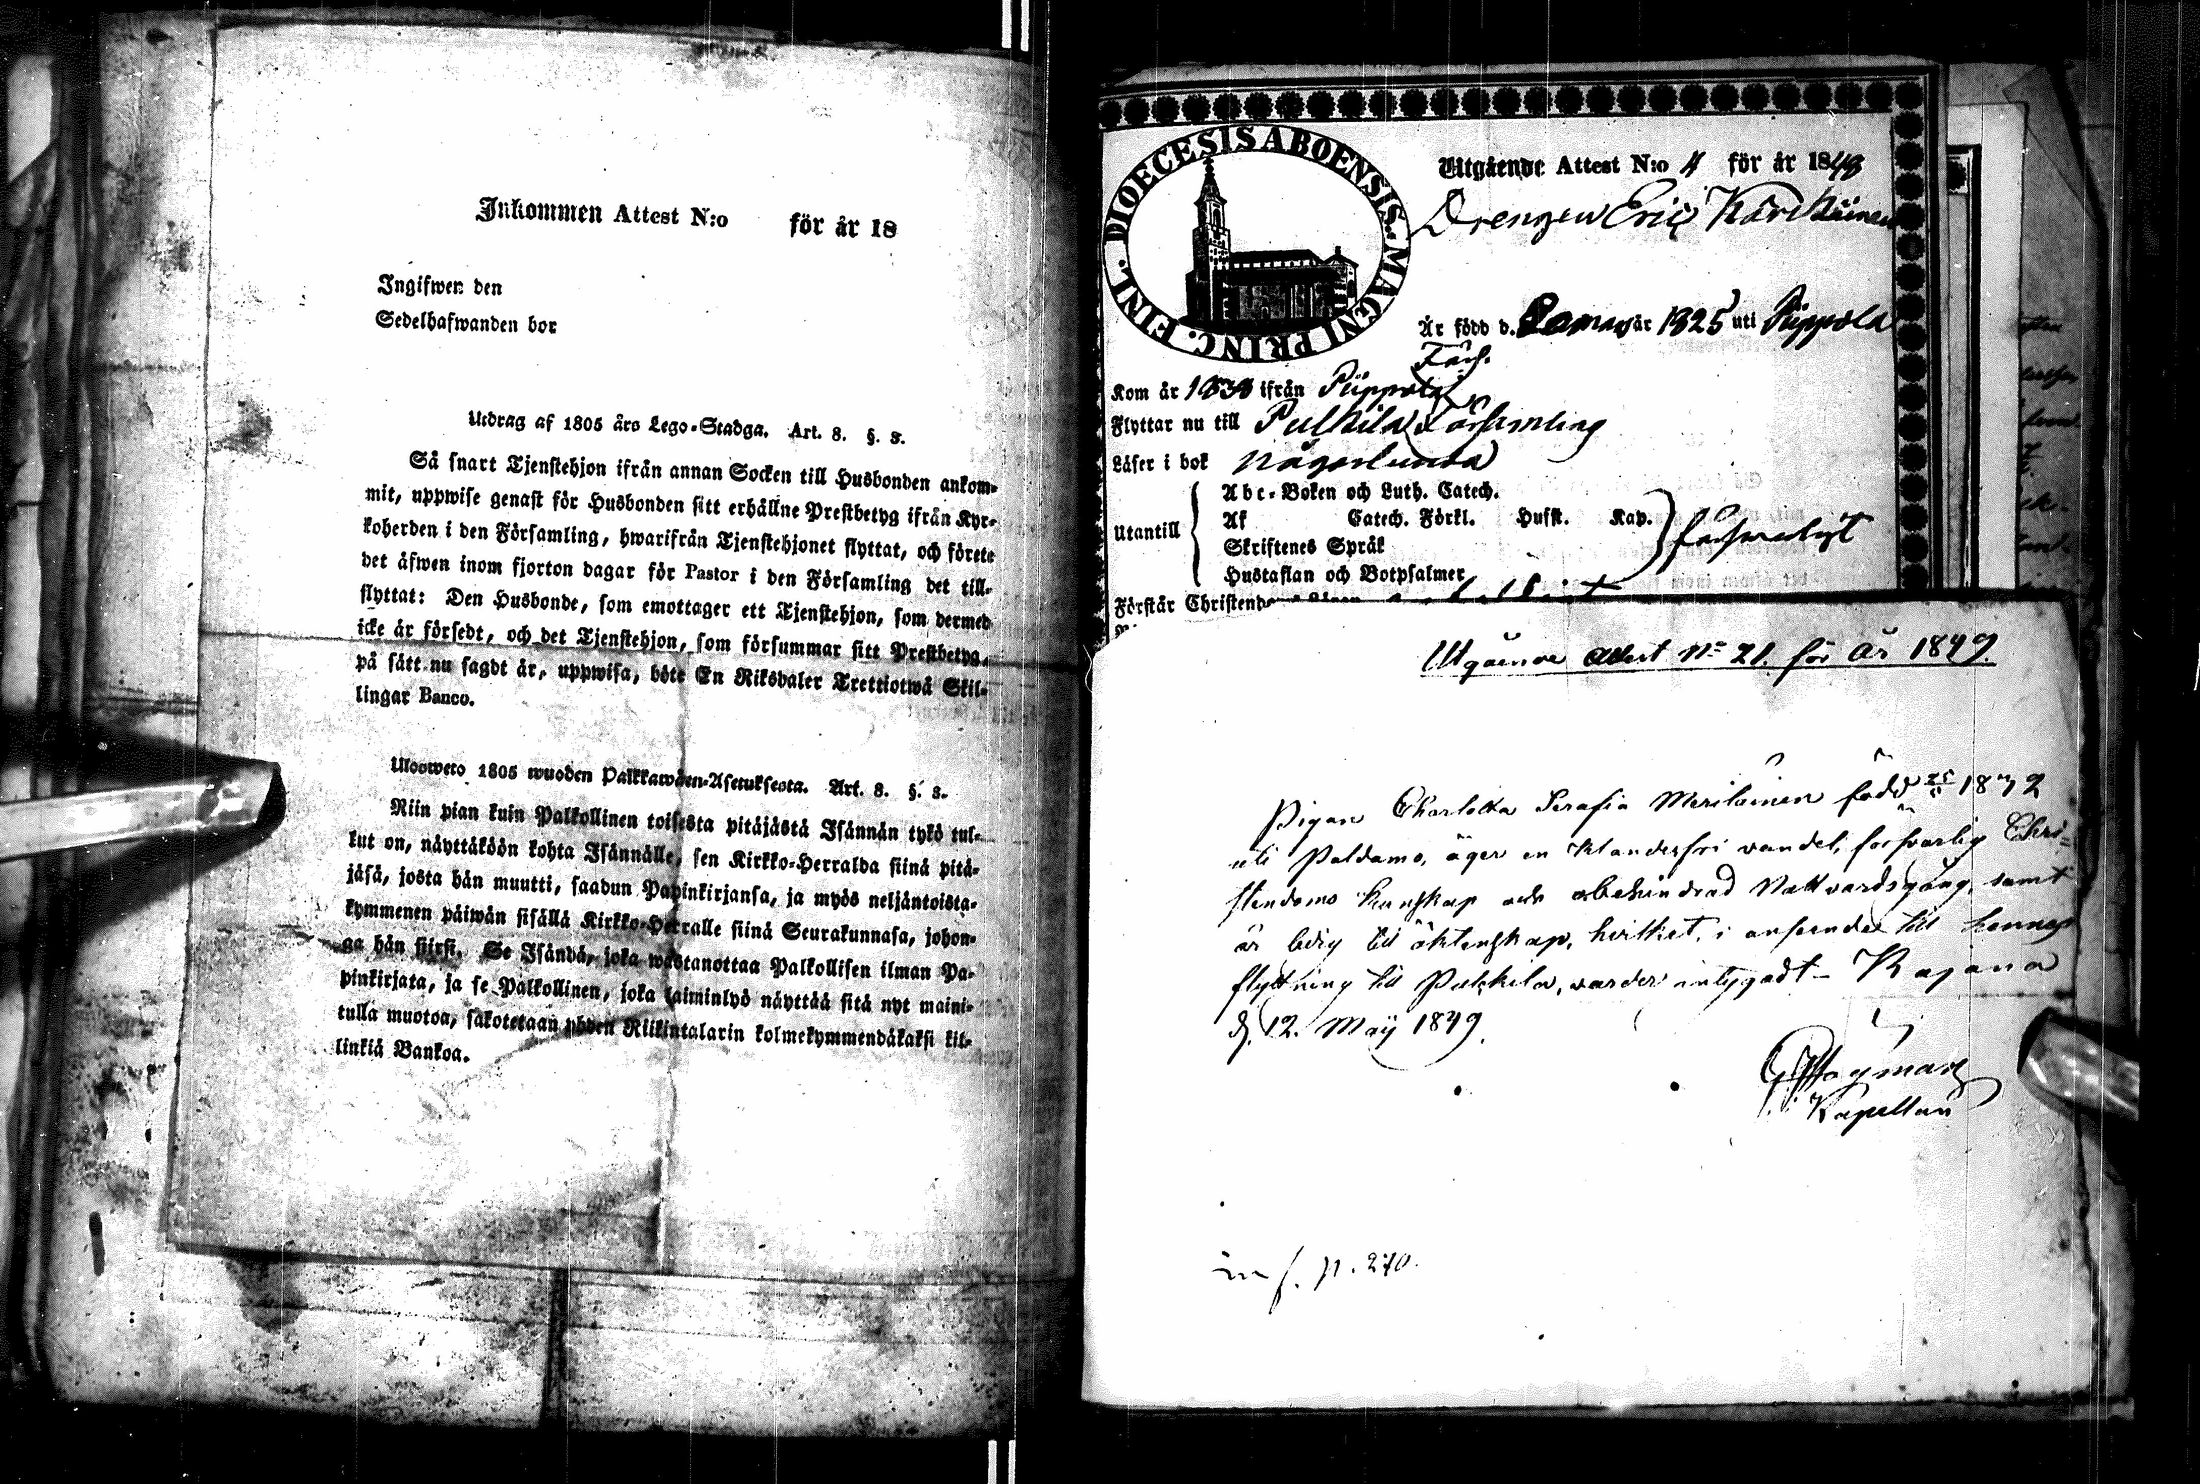 Inkommen Attest N:o för år 18
Ingifwen den
Sedelhafwanden bor
Utdrag af 1805 års Lego-Stadga. Art. 8. §. 8.
Så snart Tjenstehjon ifrån annan Socken till Husbonden ankom-
mit, uppwise genast för Husbonden sitt erhållne Prestbetyg ifrån Kyr-
koherden i den Församling, hwarifrån Tjenstehjonet flyttat, och förete
det äfwen inom fjorton dagar för Pastor i den Församling det till-
flyttat: Den Husbonde, som emottager ett Tjenstehjon, som dermed
icke är försedt, och det Tjenstehjon, som försummar sitt Prestbetyg,
på sätt nu sagdt är, uppwisa, böte En Riksdaler Trettiotwå Skil-
lingar Banco.
Ulosweto 1805 wuoden Palkkawäen-Asetuksesta. Art. 8. §. 8.
Niin pian kuin Palkollinen toisesta pitäjästä Isännän tykö tul-
kut on, näyttäköön kohta Isännälle, sen Kirkko-Herralda siinä pitä-
jäsä, josta hän muutti, saadun Papinkirjansa, ja myös neljäntoista-
kymmenen päiwän sisällä Kirkko-Herralle siinä Seurakunnasa, johon-
ga hän siirsi. Se Isändä, joka wastanottaa Palkollisen ilman Pa-
pinkirjata, ja se Palkollinen, joka laiminlyö näyttää sitä nyt maini-
tulla muotoa, sakotetaan yhden Riikintalarin kolmekymmendäkaksi kil-
linkiä Bankoa.
DIOECESIS ABOENSIS. MAGNI PRINC. FINL.
Utgående Attest N:o 4 för år 1848
Drengen Eric Kärkkäinen
Är född d. år 1825 uti Piippola
Kom år ifrån Piippola
Flyttar nu till Pulkila Församling
Läser i bok någorlunda
Utantill
Abc-Boken och Luth. Catech.
Af Catech. Förkl. Husst. Kap.
Skriftenes Språk
Hustaflan och Botpsalmer
försvarligt
Förstår
Utgående attest No 21. för år 1849.
Pigan Charlotta Serafia Meriläinen född 1832
uti Paldamo, äger en klanderfri vandel, försvarlig Chri-
stendoms kunskap och obehindrad Nattvardsgång, samt
är ledig till äktenskap, hvilket, i anseende till hennes
flyttning till Pulkkila, varder intygadt. Kajana
d. 12. Maij 1849.
Kapellan
p. 270.